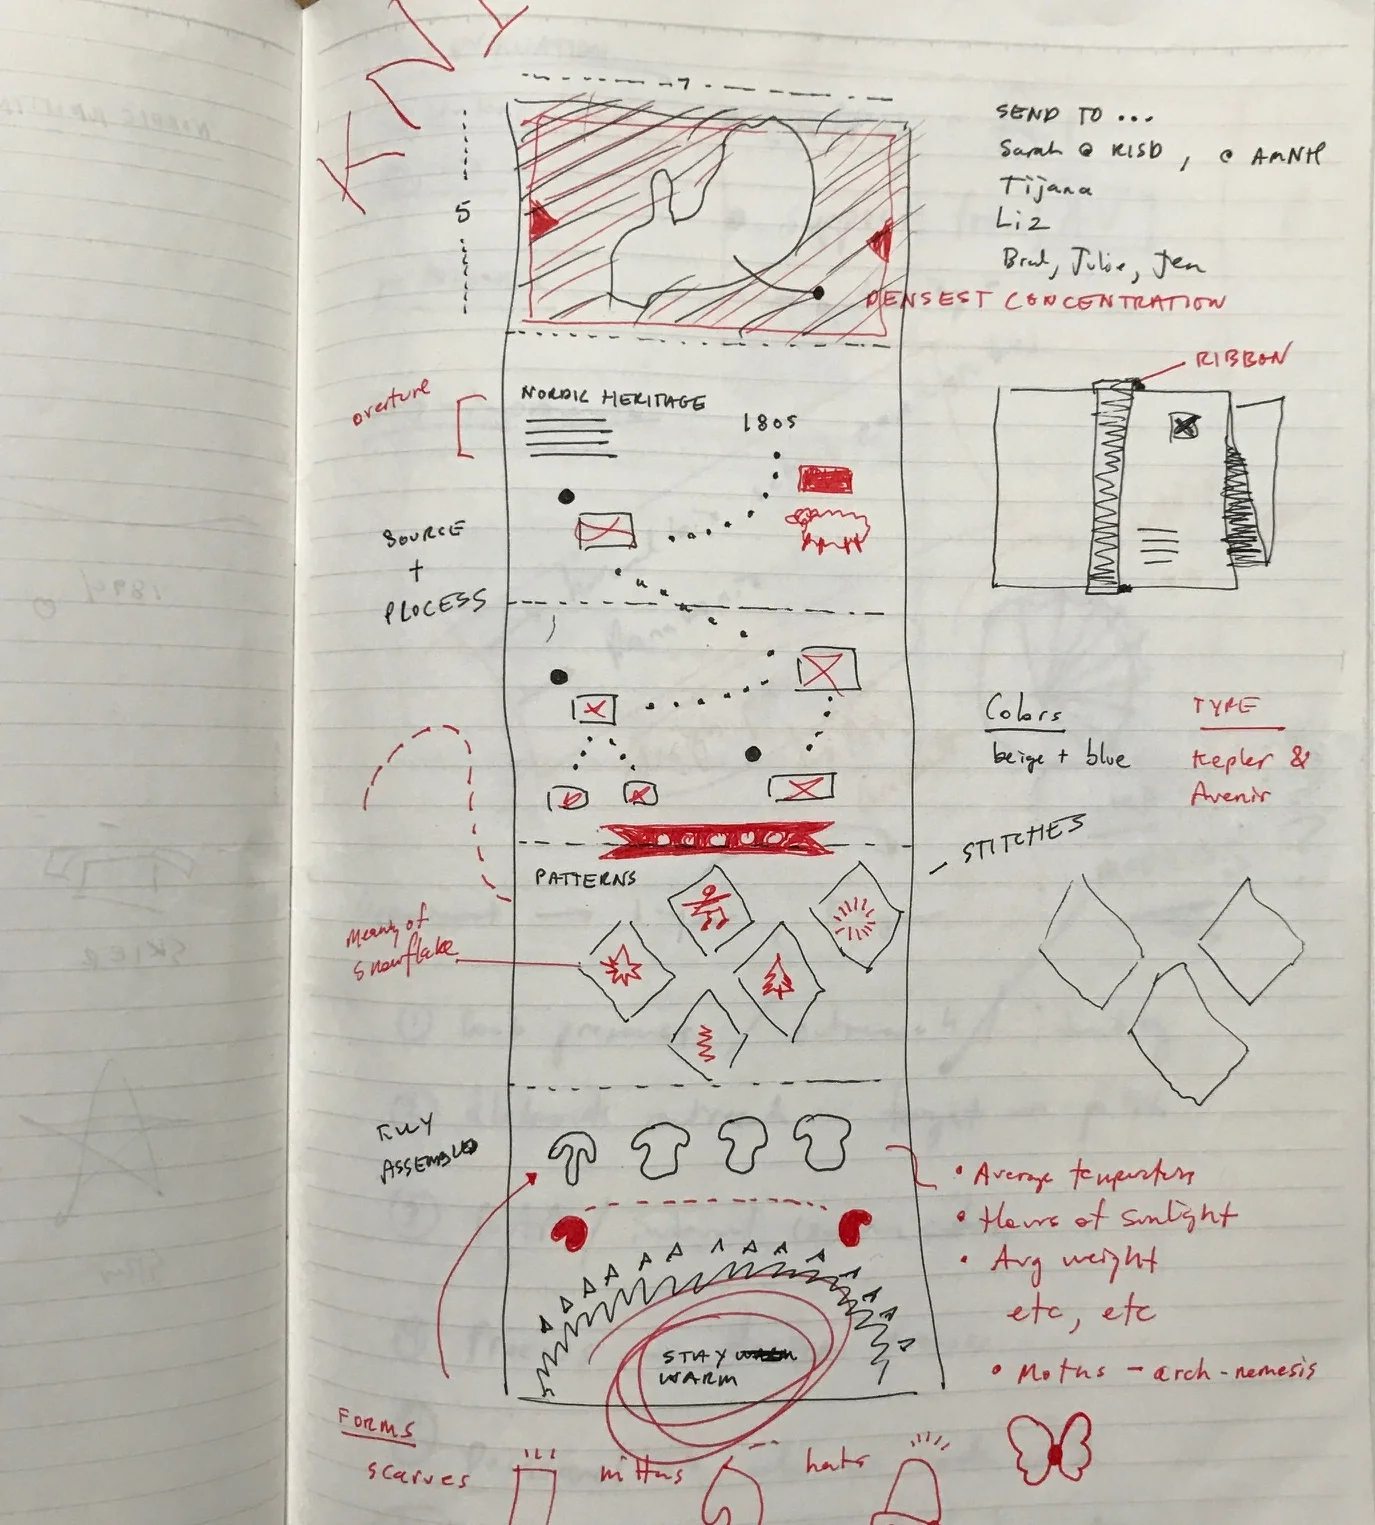 KNI
7
5
SEND TO ...
Sarah @ RISD, @ AMNH
Tijana
Liz
Brad, Julie, Jen
DENSEST CONCENTRATION
RIBBON
overture
NORDIC HERITAGE
1805
SOURCE
+
PROCESS
Colors
beige + blue
TYPE
Kepler &
Avenir
STITCHES
PATTERNS
Meaning of
Snowflake
FULLY
ASSEMBLED
• Average temperature
• Hours of sunlight
• Avg weight
etc, etc
• Moths - arch-nemesis
STAY
WARM
FORMS
scarves
mittens
hats